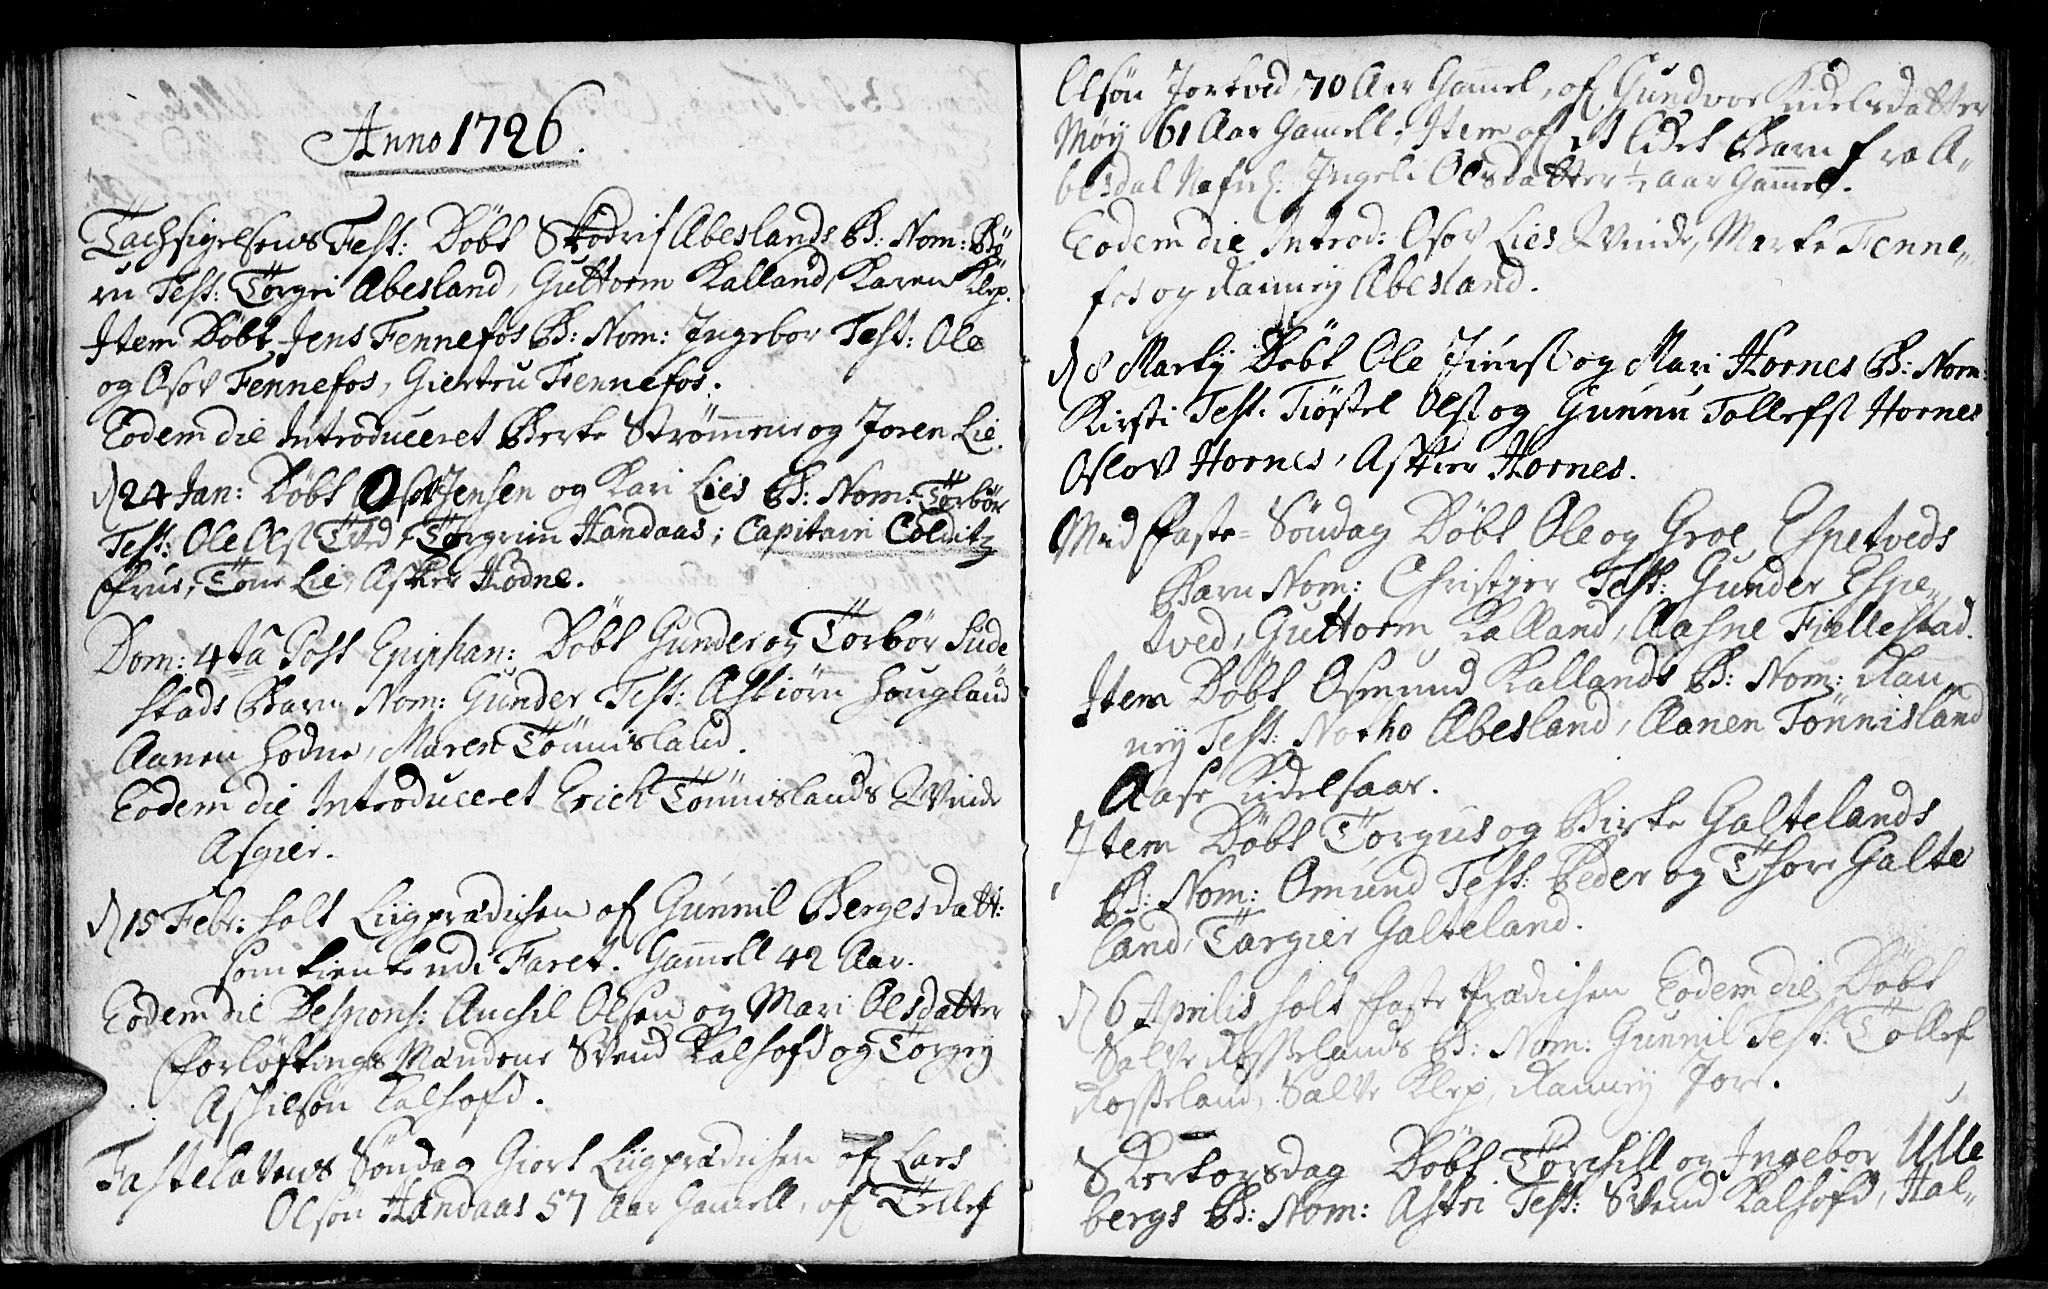 Anno 1726.
Tachsigelsens Fest: Döbt Skodrif Abeslands B: Nom: Bö
rn Test: Törgri Abesland, Guttorm Kalland, Karen Klep.
Item Döbt Jens Fennefos B: Nom: Ingebor Test: Ole
og Osov Fennefos, Giertru Fennefos.
Eodem die Introduceret Berte Strømmene og Joren Lie.
d 24 Jan: Döbt Jensen og Kari Lies B: Nom: Törbör
Test: Ole Olss Tved, Törgrim Handaas; Capitain Colditz
Frue, Töne Lie, Askier Hodne.
Dom: 4ta Post Epiphan: Döbt Gunder og Törbör Sude
stads Barn Nom: Gunder Test: Askiörn Hougland
Aanen Hodne, Maren Tönnisland.
Eodem die Introduceret Erich Tönnislands Qvinde
Asgier.
d 15 Febr: holt Liigprædichen of Gunnil Bergesdatt:
som tiente udi Faret. Gamell 42 Aar.
Eodem die Despons: Auchil Olsen og Mari Olsdatter
Forlöftnings Mændene Svend Kalhofd og Törgey
Askilsön Kalhofd.
Fastelavens Söndag Giort Liigprædichen of Lars
Olsön Handaas 57 Aar Gamell, of Tellef
Olsön Jortved, 70 Aar Gamel, of Gundvor Kidelsdatter
Möy 61 Aar Gamell, Item of et lidet Barn fra A-
besdal Nafnl. Ingeli Olsdatter ½ Aar Gamel.
Eodem die Introd: Osov Lies Qvinde, Marte Fenne-
fos og Ranney Abesland.
d 8 Marty Döbt Ole Jierss og Mari Hornes B: Nom:
Kirsti Test: Tiöstel Olss og Gunnu Tollefss Hornes
Oslov Hornes, Askier Hornes.
Mid Faste-Söndag Döbt Ole og Groe Espetveds
Barn Nom: Christper Test: Gunder Espe-
tved, Guttorm Kalland, Aasne Fiellestad.
Item Döbt Osmund Kallands B: Nom: Ran-
ney Test: Notho Abesland, Aanen Tönnisland
Aase Kidelsaar.
Item Döbt Törgus og Birte Galtelands
B: Nom: Omund Test: Peder og Thore Galte
land, Targier Galteland.
d 6 Aprilis holt Faste Prædichen Eodem die Döbt
Salve Rosselands B: Nom: Gunnil Test: Töllef
Rosseland, Salve Klep, Ranney Jore.
Skertorsdag Döbt Törchill og Ingebor Ulle
bergs B: Nom: Astri Test: Svend Kalhofd, Hal-